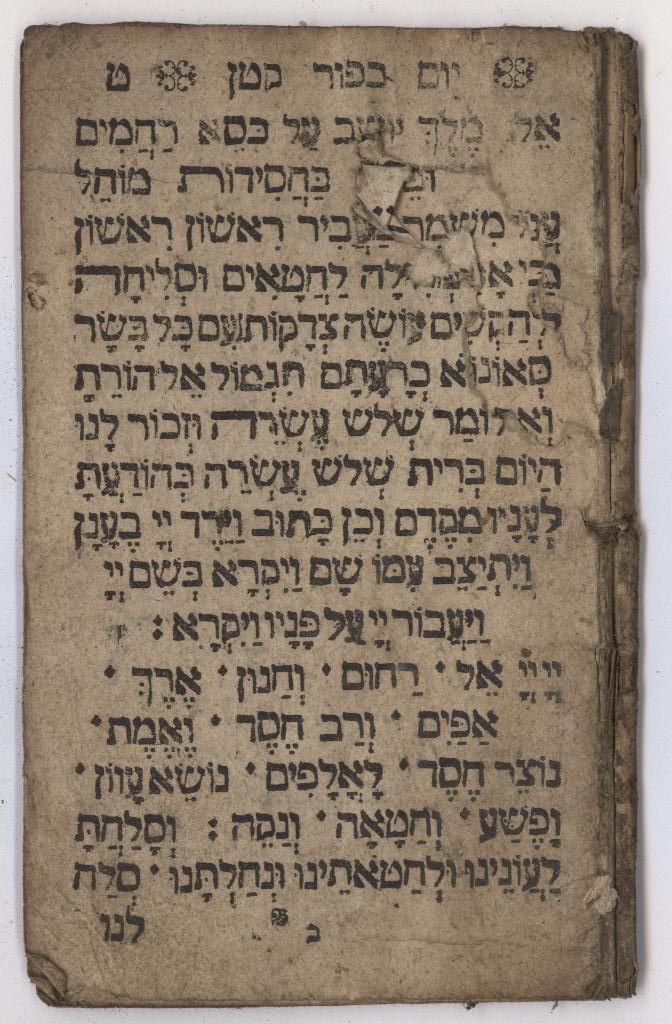 יום כפור קטן ט
אֵל מֶלֶךְ יוֹשֵׁב עַל כִּסֵא רַחֲמִים
בַּחֲסִידוּת מוֹחֵל
רִאשׁוֹן רִאשׁוֹן
לַחֲטָאִים וּסְלִיחָה
עוֹשֶׂה צְדָקוֹת עִם כָּל בָּשָׂר
כְרָעָתָם תִּגְמוֹל אֵל הוֹרֵתָ
לוֹמַר שְׁלֹשׁ עֶשְׂרֵה וּזְכוֹר לָנוּ
הַיּוֹם בְּרִית שְׁלֹשׁ עֶשְׂרֵה כְּהוֹדַעְתָּ
לְעָנָיו מִקֶּדֶם וְכֵן כָּתוּב וַיֵּרֶד יְיָ בֶעָנָן
וַיִּתְיַצֵּב עִמּוֹ שָׁם וַיִּקְרָא בְּשֵׁם יְיָ
וַיַּעֲבוֹר יְיָ עַל פָּנָיו וַיִּקְרָא :
יְיָ יְיָ אֵל · רַחוּם · וְחַנּוּן · אֶרֶךְ ·
אַפַּיִם · וְרַב חֶסֶד · וֶאֱמֶת ·
נוֹצֵר חֶסֶד · לָאֲלָפִים · נוֹשֵׂא עָווֹן ·
וָפֶשַׁע · וְחַטָּאָה · וְנַקֵּה : וְסָלַחְתָּ
לַעֲוֹנֵינוּ וּלְחַטֹּאתֵינוּ וּנְחַלְתָּנוּ · סְלַח
ב לנו